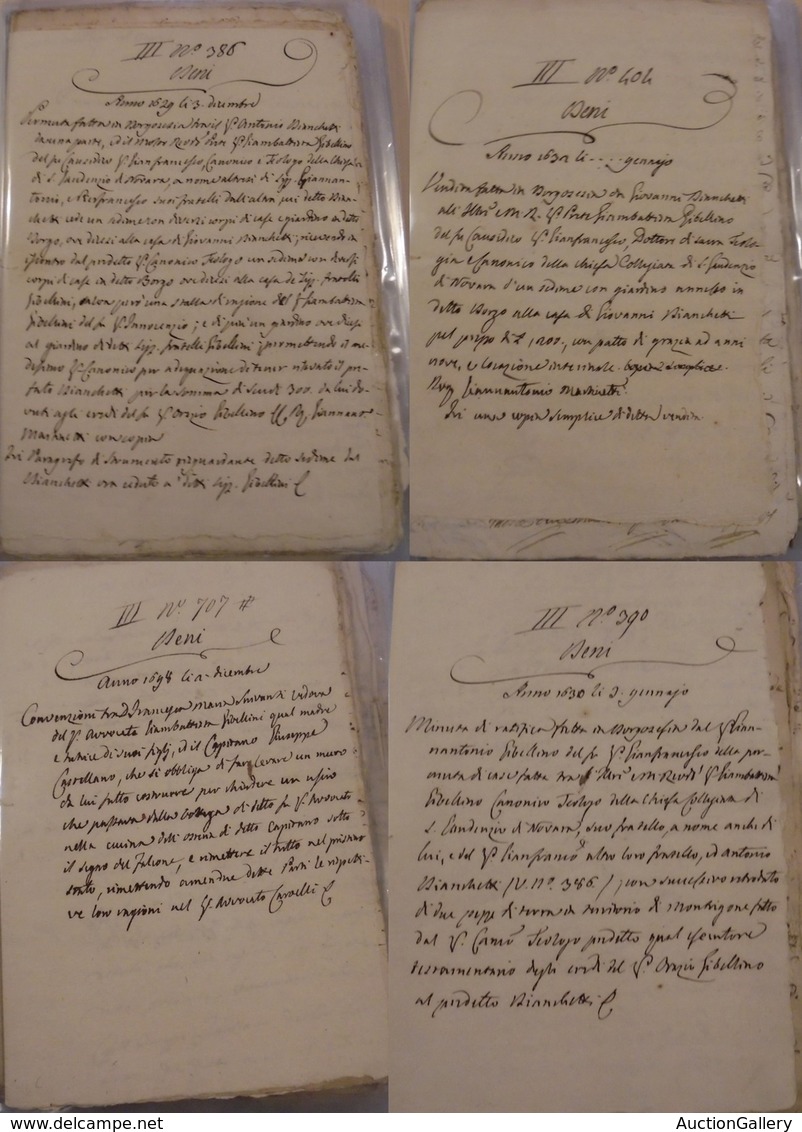 III Nº 386
Beni
Anno 1629 li 3. dicembre
Permuta fatta in Borgosesia tra il Sr Antonio Bianchetti
da una parte, ed il molto Revdo Prete Sr Giambattista Gibellino
del fu Causidico Sr Gianfrancesco Canonico e Teologo della Chiesa
di S. Gaudenzio di Novara, a nome altresì di Sigg. Giannan-
tonio, e Pierfrancesco suoi fratelli dall'altra, qui detto Bian-
chetti cede un sedime con diversi corpi di case e giardino in detto
Borgo, ove dicesi alla casa di Giovanni Bianchetti; ricevendo in
iscontro dal predetto Sr Canonico Teologo un sedime con diversi
corpi di case in detto Borgo ove dicesi alla casa de Sigg. fratelli
Gibellini, salva però una stalla di ragione del Sr Giambattista
Gibellini del fu Sr Innocenzio; e di più un giardino ove dicesi
al giardino di detti Sigg. fratelli Gibellini; promettendo il me-
desimo Sr Canonico per adequazione di tener rilevato il pre-
fato Bianchetti per la somma di Scudi 300. da lui do-
vuti agli eredi del fu Sr Orazio Gibellino Rog. Giannan-
Marinetti con copia
Ivi Paragrafo di Strumento risguardante detto Sedime dal
Bianchetti ora ceduto a detti Sigg. Gibellini
III Nº 404
Beni
Anno 1632 li .... gennajo
Vendita fatta in Borgosesia da Giovanni Bianchetti
all'Illmo e M. R. Sr Prete Giambattista Gibellino
del fu Causidico Sr Gianfrancesco, Dottore di sacra Teolo-
gia e Canonico della Chiesa Collegiata di S. Gaudenzio
di Novara d'un sedime con giardino annesso in
detto Borgo alla casa di Giovanni Bianchetti
pel prezzo di £ 1200., con patto di grazia ad anni
nove, e locazione interinale.
Rog. Giannantonio Marinetti.
Ivi una copia semplice di detta vendita
III Nº 707 #
Beni
Anno 1698 li 2. dicembre
Convenzioni tra Da Francesca Maria vedova
del Sr Avvocato Giambattista Gibellini qual madre
e tutrice di suoi figlj, ed il Capitano Giuseppe
Castellano, che si obbliga di far levare un muro
da lui fatto costrurre per chiudere un uscio
che passava dalla bottega di detto fu Sr Avvocato
nella cucina dell'osteria di detto Capitano sotto
il segno del falcone, e rimettere il tutto nel pristino
stato, rimettendo amendue dette Parti le rispetti-
ve loro ragioni nel Sr Avvocato Carelli
III Nº 390
Beni
Anno 1630 li 3. gennajo
Minuta di ratifica fatta in Borgosesia dal Sr Gian-
nantonio Gibellino del fu Sr Gianfrancesco della per-
muta di case fatta tra l'Illmo e M. Revdo Sr Giambattista
Gibellino Canonico Teologo della Chiesa Collegiata di
S. Gaudenzio di Novara, suo fratello, a nome anche di
lui, e del Sr Gianfranco altro loro fratello, ed Antonio
Bianchetti (V. Nº 386); con successivo retrodato
di due pezze di terra in territorio di Montrigone fatto
dal Sr Canco Teologo predetto qual esecutore
testamentario degli eredi del Sr Orazio Gibellino
al predetto Bianchetti
AuctionGallery